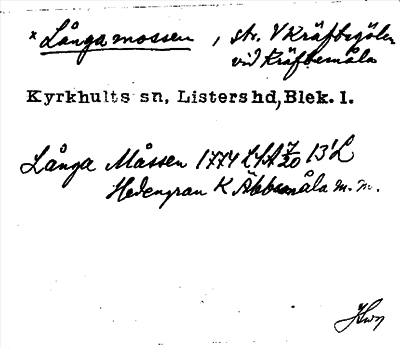 × Långa mossen, str. V Kräftgölen
vid Kräftemåla
Kyrkhults sn, Listers hd, Blek. l.
Långa Måssen 1774 LSA 7/20 13'L
Hedengran K Äbbamåla m.m.